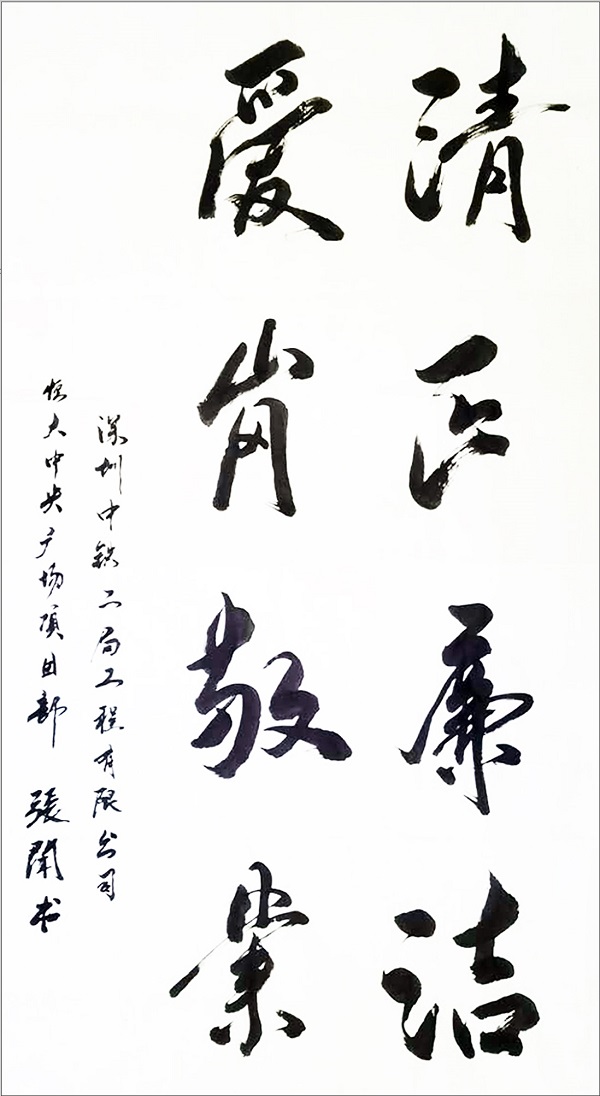 清正廉洁
爱岗敬业
深圳中铁二局工程有限公司
恒大中央广场项目部 張闻书